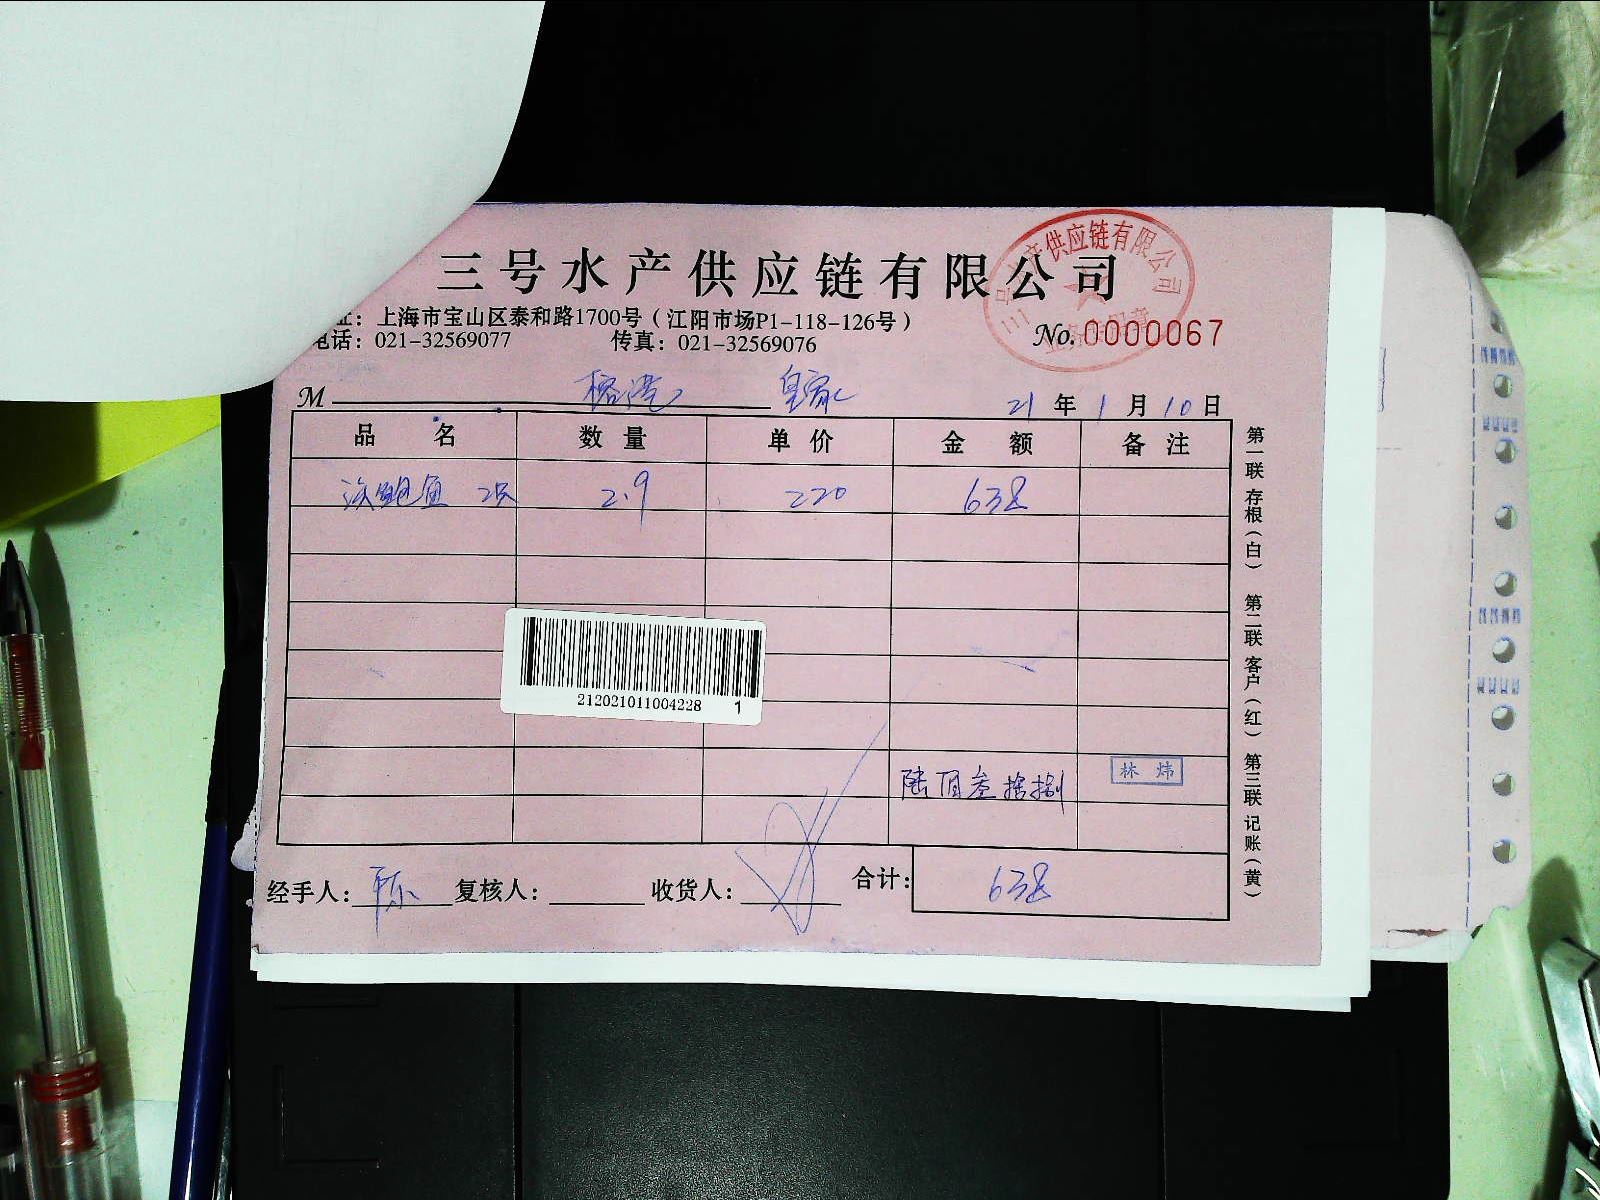 三号水产供应链有限公司
址：上海市宝山区泰和路1700号（江阳市场P1-118-126号）
电话：021-32569077 传真：021-32569076
No.0000067
供应链有限公司
M 榕港 皇家 21年1月10日
品名 数量 单价 金额 备注
鲍鱼 2.9 220 638
212021011004228 1
陆佰叁拾捌 林炜
经手人： 复核人： 收货人： 合计：638
第一联 存根（白） 第二联 客户（红） 第三联 记账（黄）